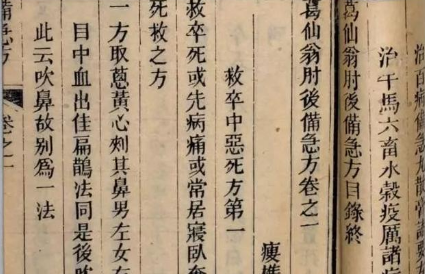 治百病備急丸散膏諸要方
治牛馬六畜水穀疫厲諸病
葛仙翁肘後備急方目錄終
葛仙翁肘後備急方卷之一
救卒中惡死方第一
救卒死或先病痛或常居寢臥奄
死救之方
一方取蔥黃心刾其鼻男左女右
目中血出佳扁鵲法同是後吹
此云吹鼻故別爲一法
備急方
卷之一